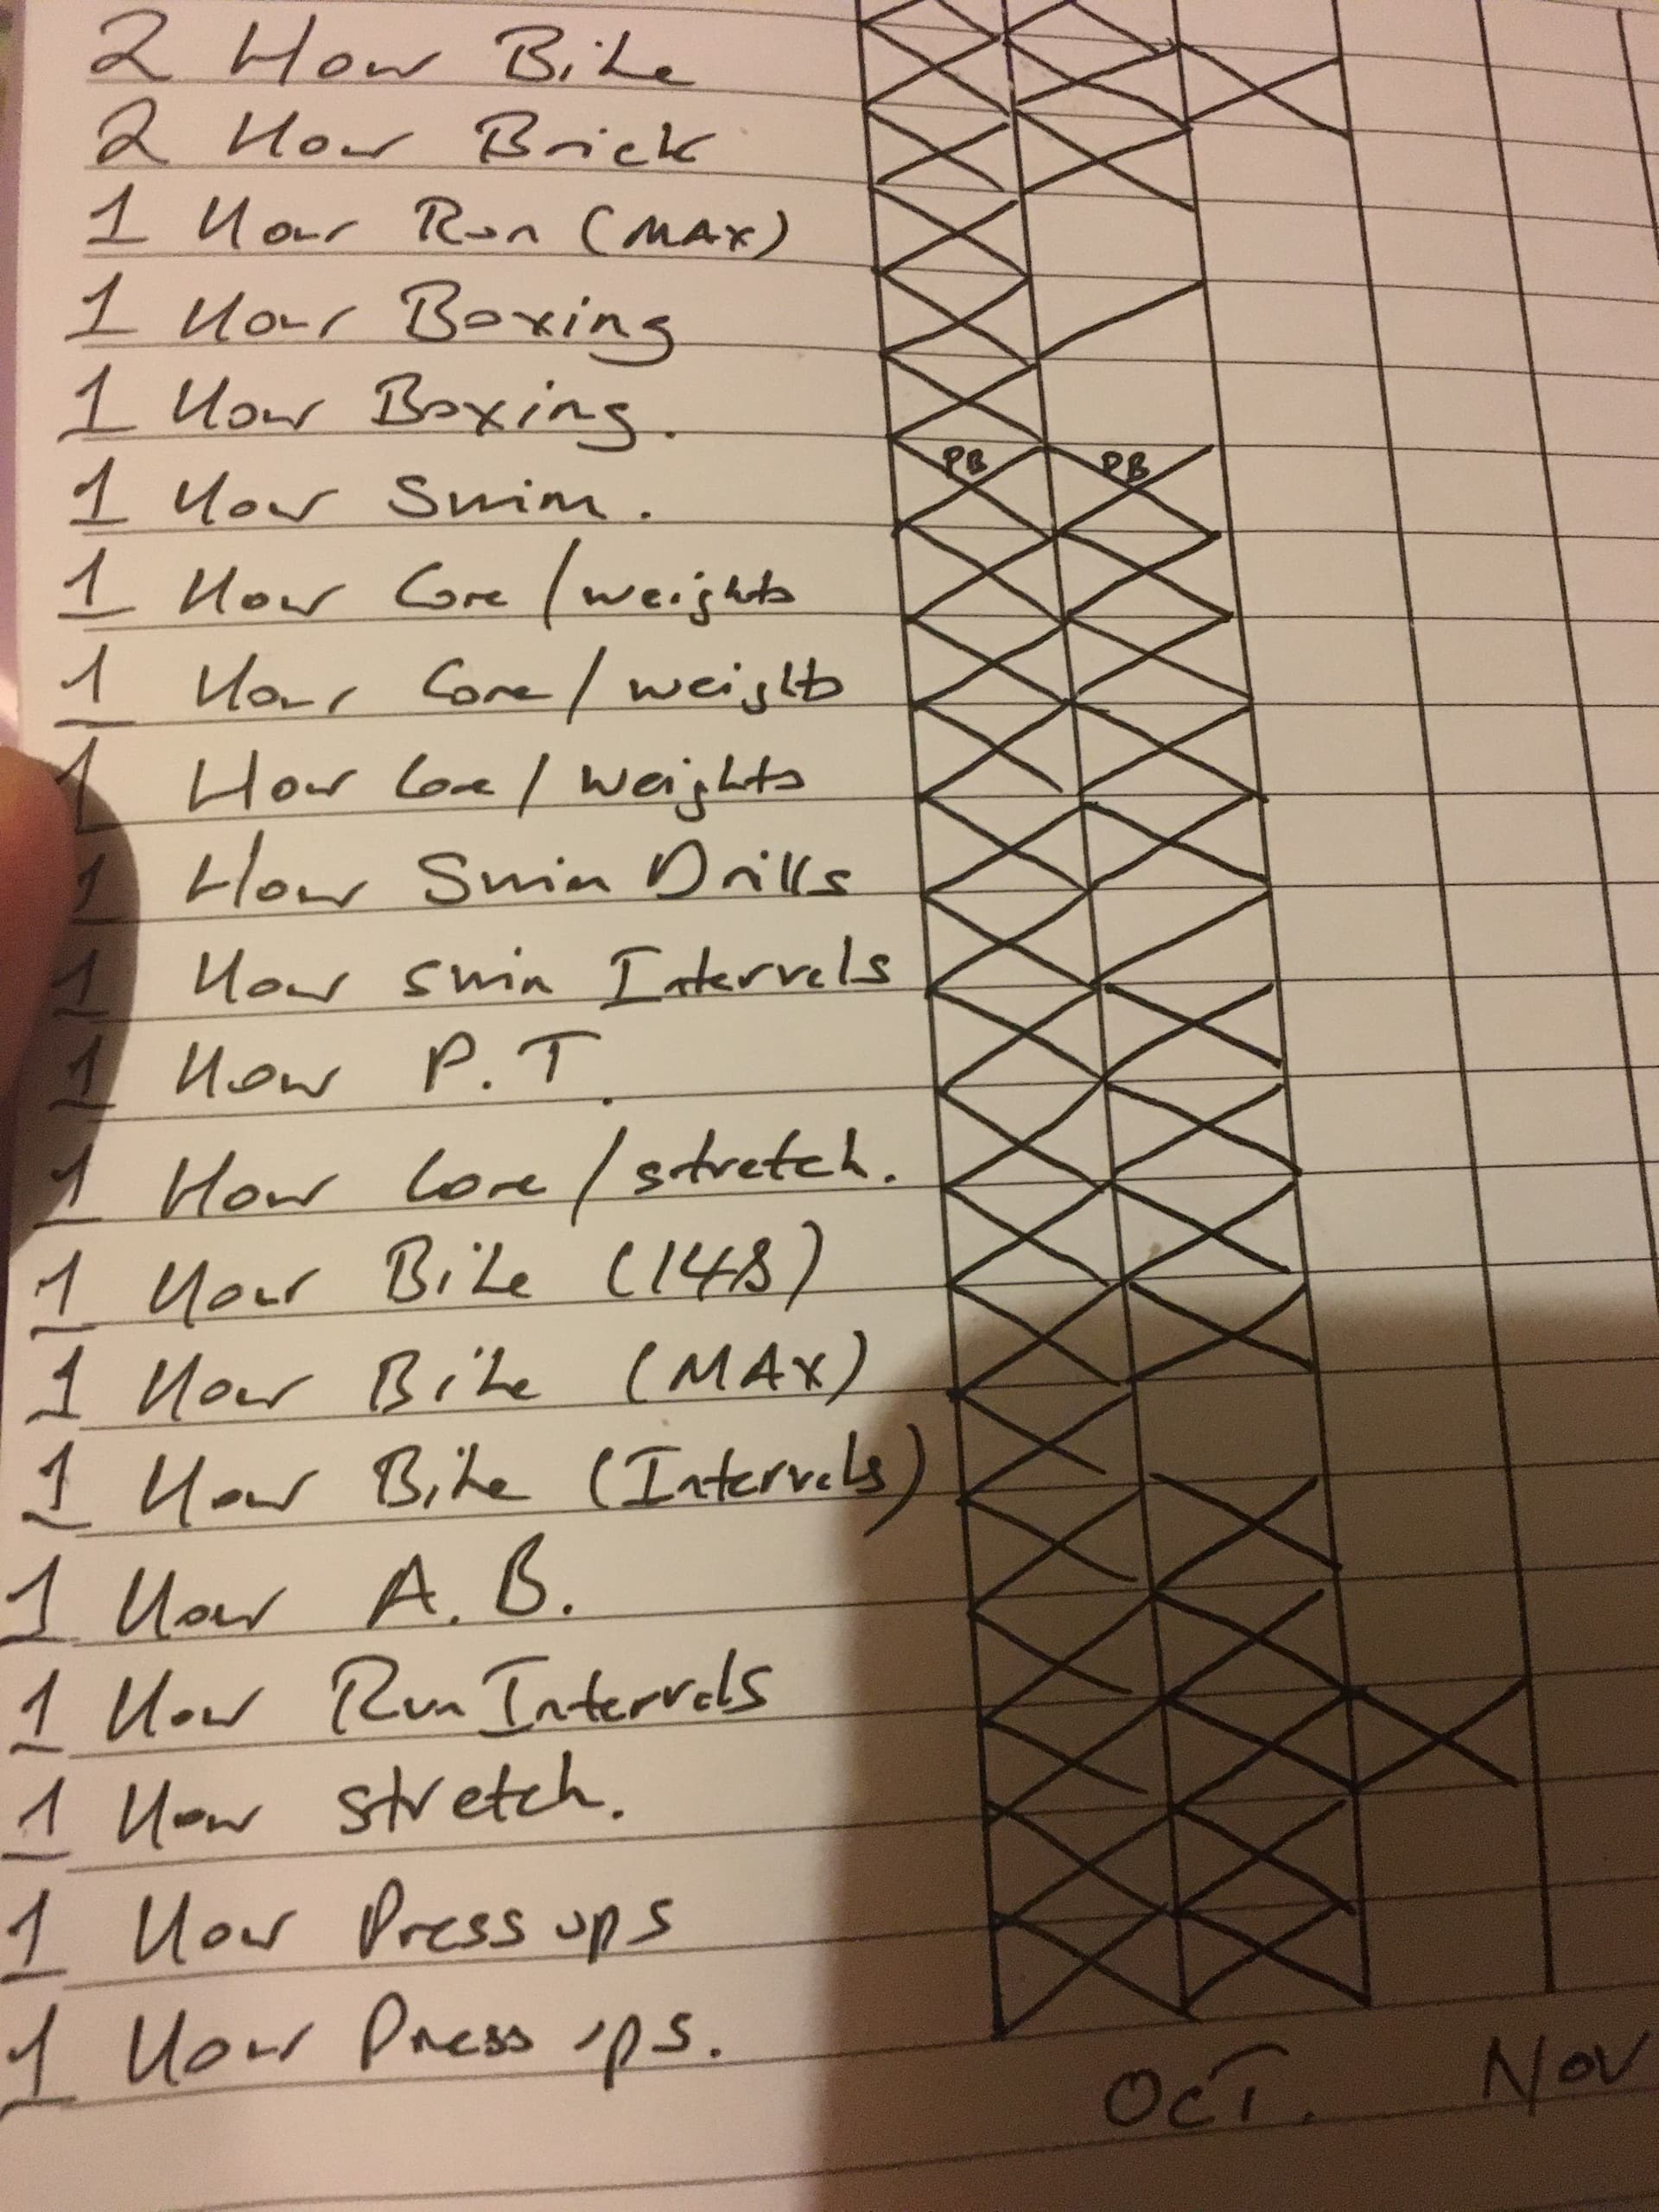 2 Hour Bike
2 Hour Brick
1 Hour Run (MAX)
1 Hour Boxing
1 Hour Boxing.
PB PB
1 Hour Swim.
1 Hour Core/weights
1 Hour Core/weights
1 Hour Core/weights
1 Hour Swim Drills
1 Hour swim Intervals
1 Hour P.T.
1 Hour Core/stretch.
1 Hour Bike (148)
1 Hour Bike (MAX)
1 Hour Bike (Intervals)
1 Hour A.B.
1 Hour Run Intervals
1 Hour stretch.
1 Hour Press ups
1 Hour Press ups.
OCT. NOV